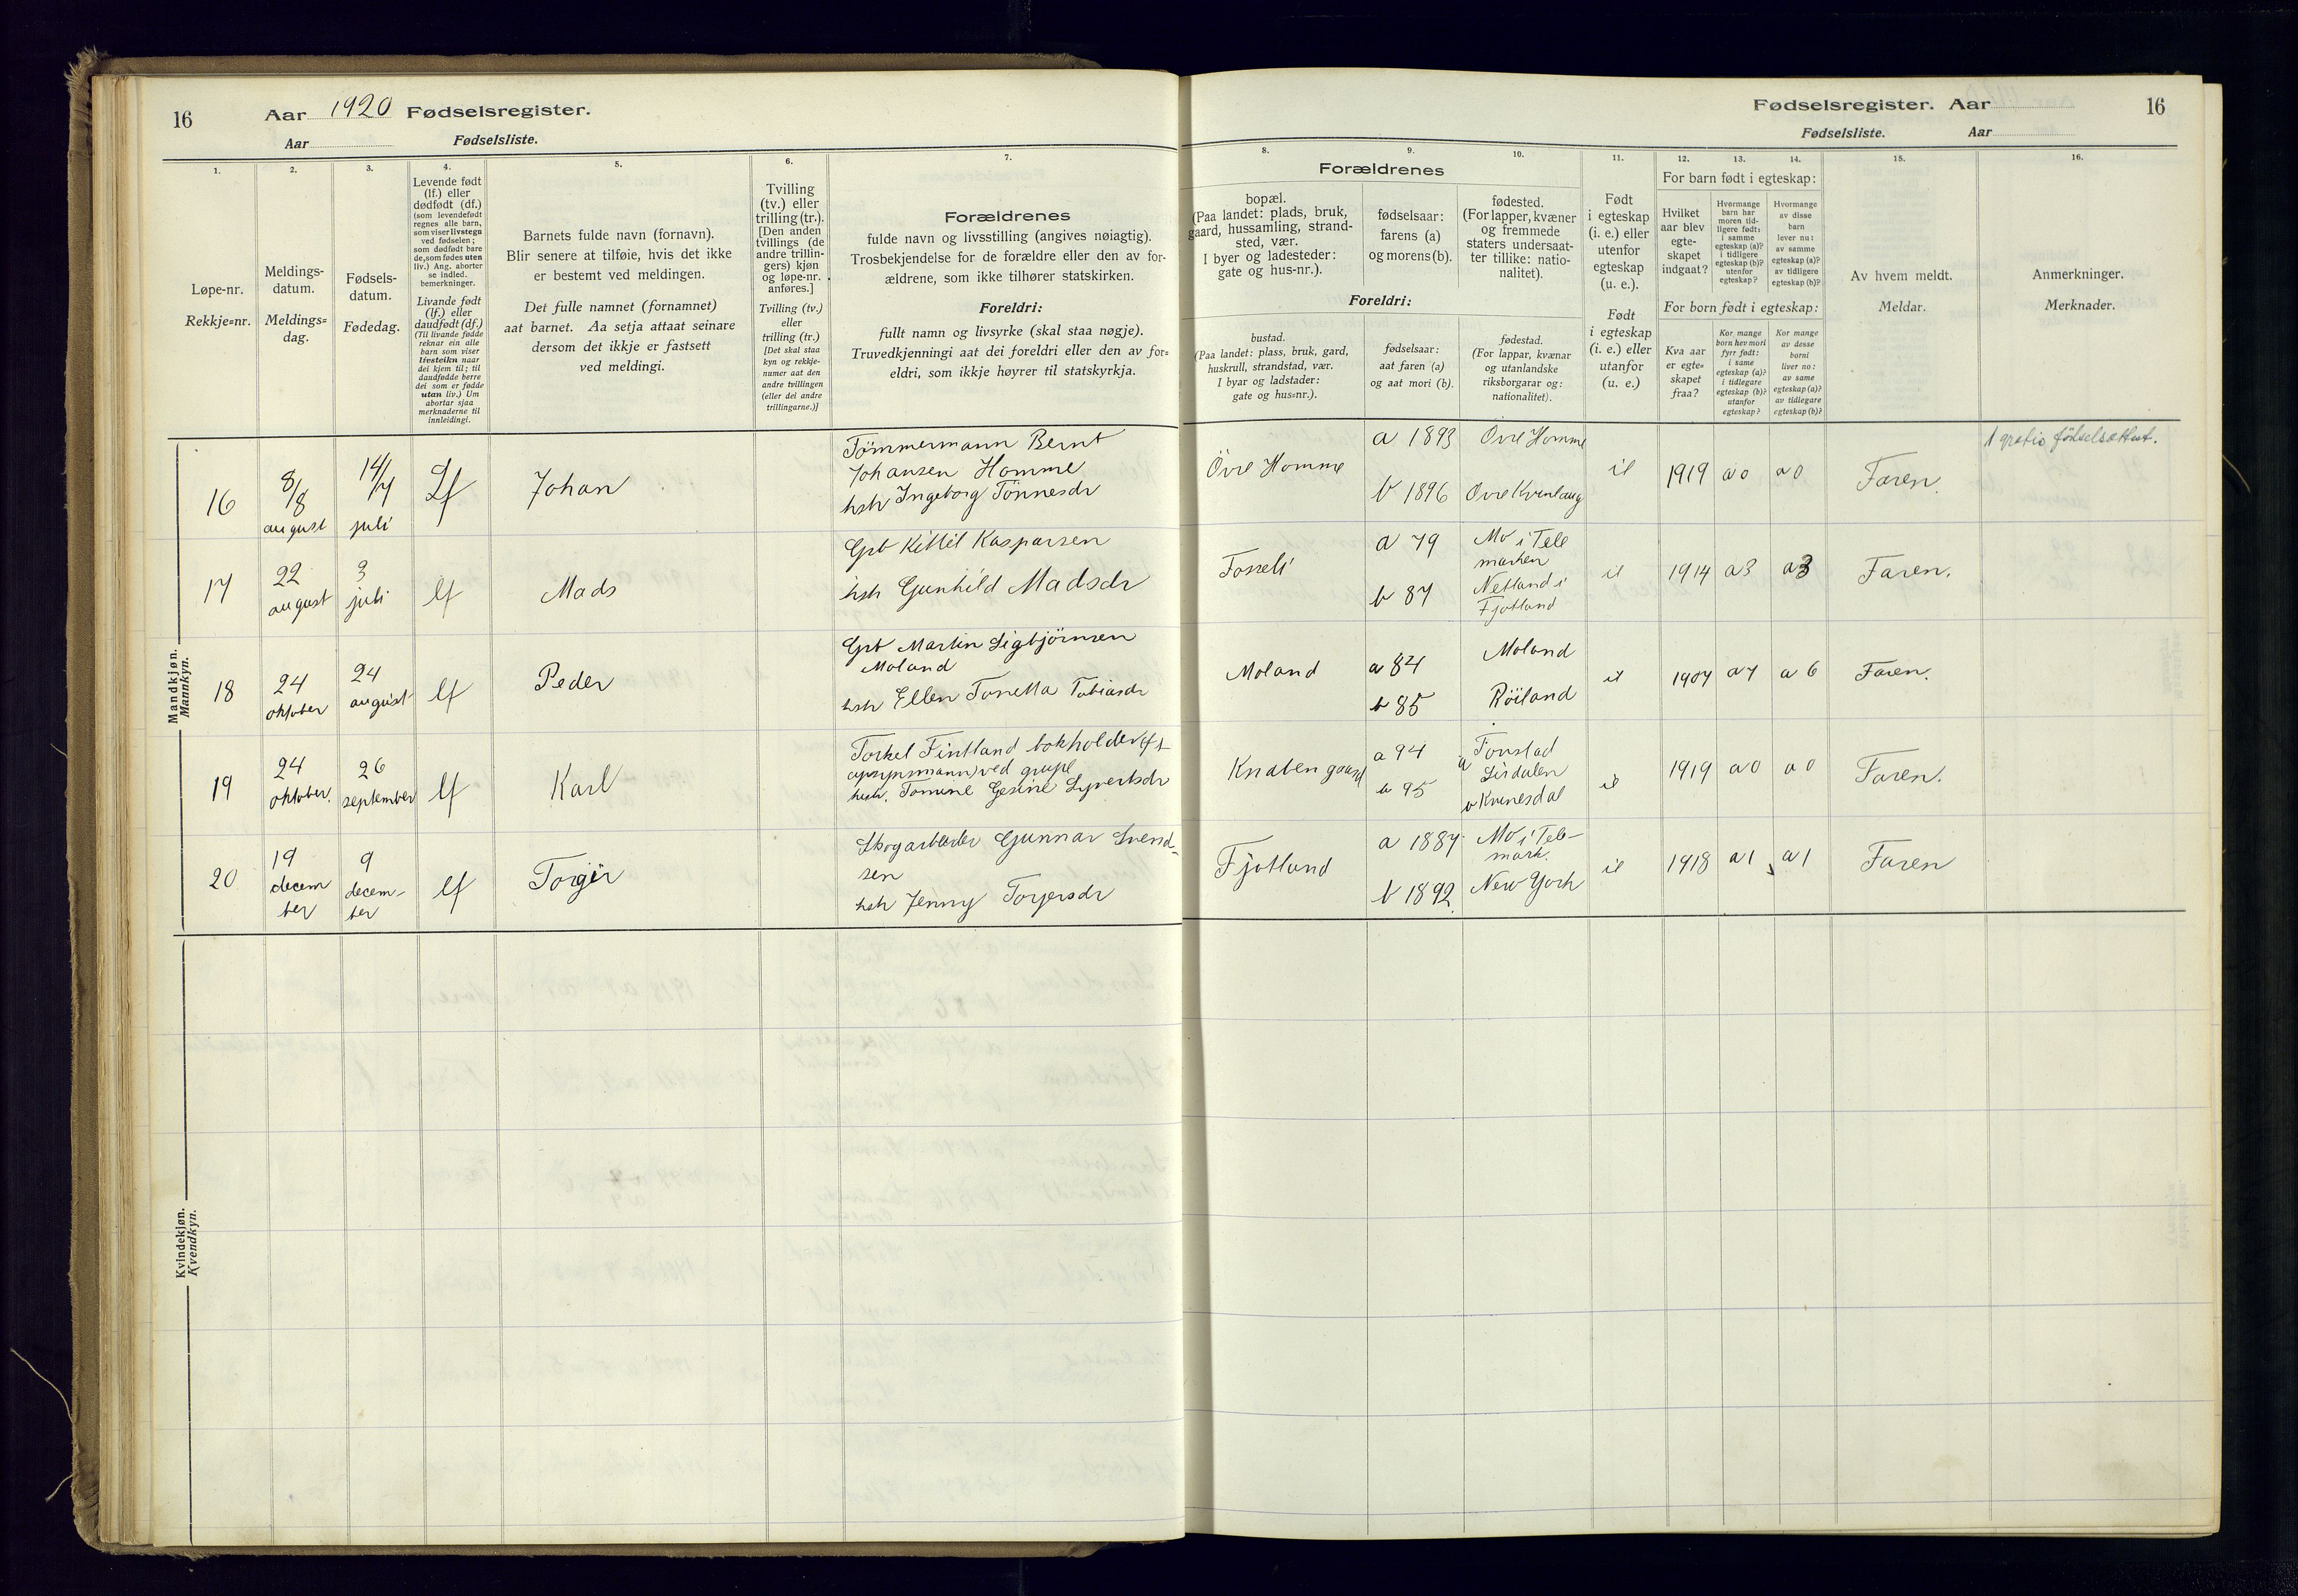 16
Aar 1920 Fødselsregister.
Aar Fødselsliste.
Fødselsregister. Aar
16
Fødselsliste. Aar
1.
Løpe-nr.
Rekkje=nr.
2.
Meldings-
datum.
Meldings=
dag.
3.
Fødsels-
datum.
Fødedag.
4.
Levende født
(lf.) eller
dødfødt (df.)
(som levendefødt
regnes alle barn,
som viser livstegn
ved fødselen;
som dødfødt bare
de, som fødes uten
liv.) Ang. aborter
se indled.
bemerkninger.
Livande født
(lf.) eller
daudfødt (df.)
(Til livande fødde
reknar ein alle
barn som viser
livsteikn naar
dei kjem til; til
daudfødde berre
dei som er fødde
utan liv.) Um
abortar sjaa
merknaderne til
innleidingi.
5.
Barnets fulde navn (fornavn).
Blir senere at tilføie, hvis det ikke
er bestemt ved meldingen.
Det fulle namnet (fornamnet)
aat barnet. Aa setja attaat seinare
dersom det ikkje er fastsett
ved meldingi.
6.
Tvilling
(tv.) eller
trilling (tr.).
[Den anden
tvillings (de
andre trillin-
gers) kjøn
og løpe-nr.
anføres.]
Tvilling (tv.)
eller
trilling (tr.)
[Det skal staa
kyn og rekkje-
numer aat den
andre tvillingen
(eller dei andre
trillingarne.)]
7.
Forældrenes
fulde navn og livsstilling (angives nøiagtig).
Trosbekjendelse for de forældre eller den av for-
ældrene, som ikke tilhører statskirken.
Foreldri:
fullt namn og livsyrke (skal staa nøgje).
Truvedkjenningi aat dei foreldri eller den av for=
eldri, som ikkje høyrer til statskyrkja.
Forældrenes
8.
bopæl.
(Paa landet: plads, bruk,
gaard, hussamling, strand-
sted, vær.
I byer og ladesteder:
gate og hus-nr.).
9.
fødselsaar:
farens (a)
og morens (b).
10.
fødested.
(For lapper, kvæner
og fremmede
staters undersaat-
ter tillike: natio-
nalitet).
Foreldri:
bustad.
(Paa landet: plass, bruk, gard,
huskrull, strandstad, vær.
I byar og ladstader:
gate og hus=nr.).
fødselsaar:
aat faren (a)
og aat mori (b).
fødestad.
(For lappar, kvænar
og utanlandske
riksborgarar og:
nationalitet).
11.
Født
i egteskap
(i. e.) eller
utenfor
egteskap
(u. e.).
Født
i egteskap
(i. e.) eller
utanfor
egteskap
(u. e.)
12.
13.
14.
For barn født i egteskap:
Hvilket
aar blev
egte-
skapet
indgaat?
Hvormange
barn har
moren tid-
ligere født:
i samme
egteskap (a)?
i tidligere
egteskap (b)?
utenfor
egteskap?
Hvormange
av disse
barn
lever nu:
av samme
egteskap (a)?
av tidligere
egteskap (b)?
For born født i egteskap:
Kva aar
er egte=
skapet
fraa?
Kor mange
born hev mori
fyrr født:
i same
egteskap (a)?
i tidlegare
egteskap (b)?
utanfor
egteskap?
Kor mange
av desse
borni
liver no:
av same
egteskap (a)?
av tidlegare
egteskap (b)?
15.
Av hvem meldt.
Meldar.
16.
Anmerkninger.
Merknader.
Mandkjøn.
Mannkyn.
16
8/8
august
14/7
juli
Lf
Johan
Tömmermann Bernt
Johansen Homme
hstr Ingeborg Tönnesdr
Övre Homme
a 1893
b 1896
Övre Homme
Övre Kvinlaug
1919 a 0 a 0
Faren.
1 gratis fødselsattest.
17
22
august
3
juli
lf
Mads
Gpb Kittil Kasparsen
hstr Gunhild Madsdr
Fosseli
a 79
b 87
Mo i Tele
marken
Netland i
Fjotland
1914 a 3 a 3
Faren.
18
24
oktober
24
august
lf
Peder
Gpb Martin Sigbjörnsen
Moland
hstr Ellen Tonetta Tobiasdr
Moland
a 84
b 85
Moland
Röiland
1907 a 7 a 6
Faren.
19
24
oktober.
26
september
lf
Karl
Torkel Fintland bokholder
ved grube
hstr. Tomine Gesine Syvertsdr
Knaben gaard
a 94
b 95
a Tonstad
Sirdalen
b Kvinesdal
1919 a 0 a 0
Faren.
20
19
decem
ber
9
decem-
ber
lf
Torgër
Skogarbeider Gunnar Svend-
sen
hstr Jenny Torjersdr
Fjotland
a 1887
b 1892.
Mo i Tele-
mark.
New York
1918 a 1 a 1
Faren
Kvindekjøn.
Kvendkyn.